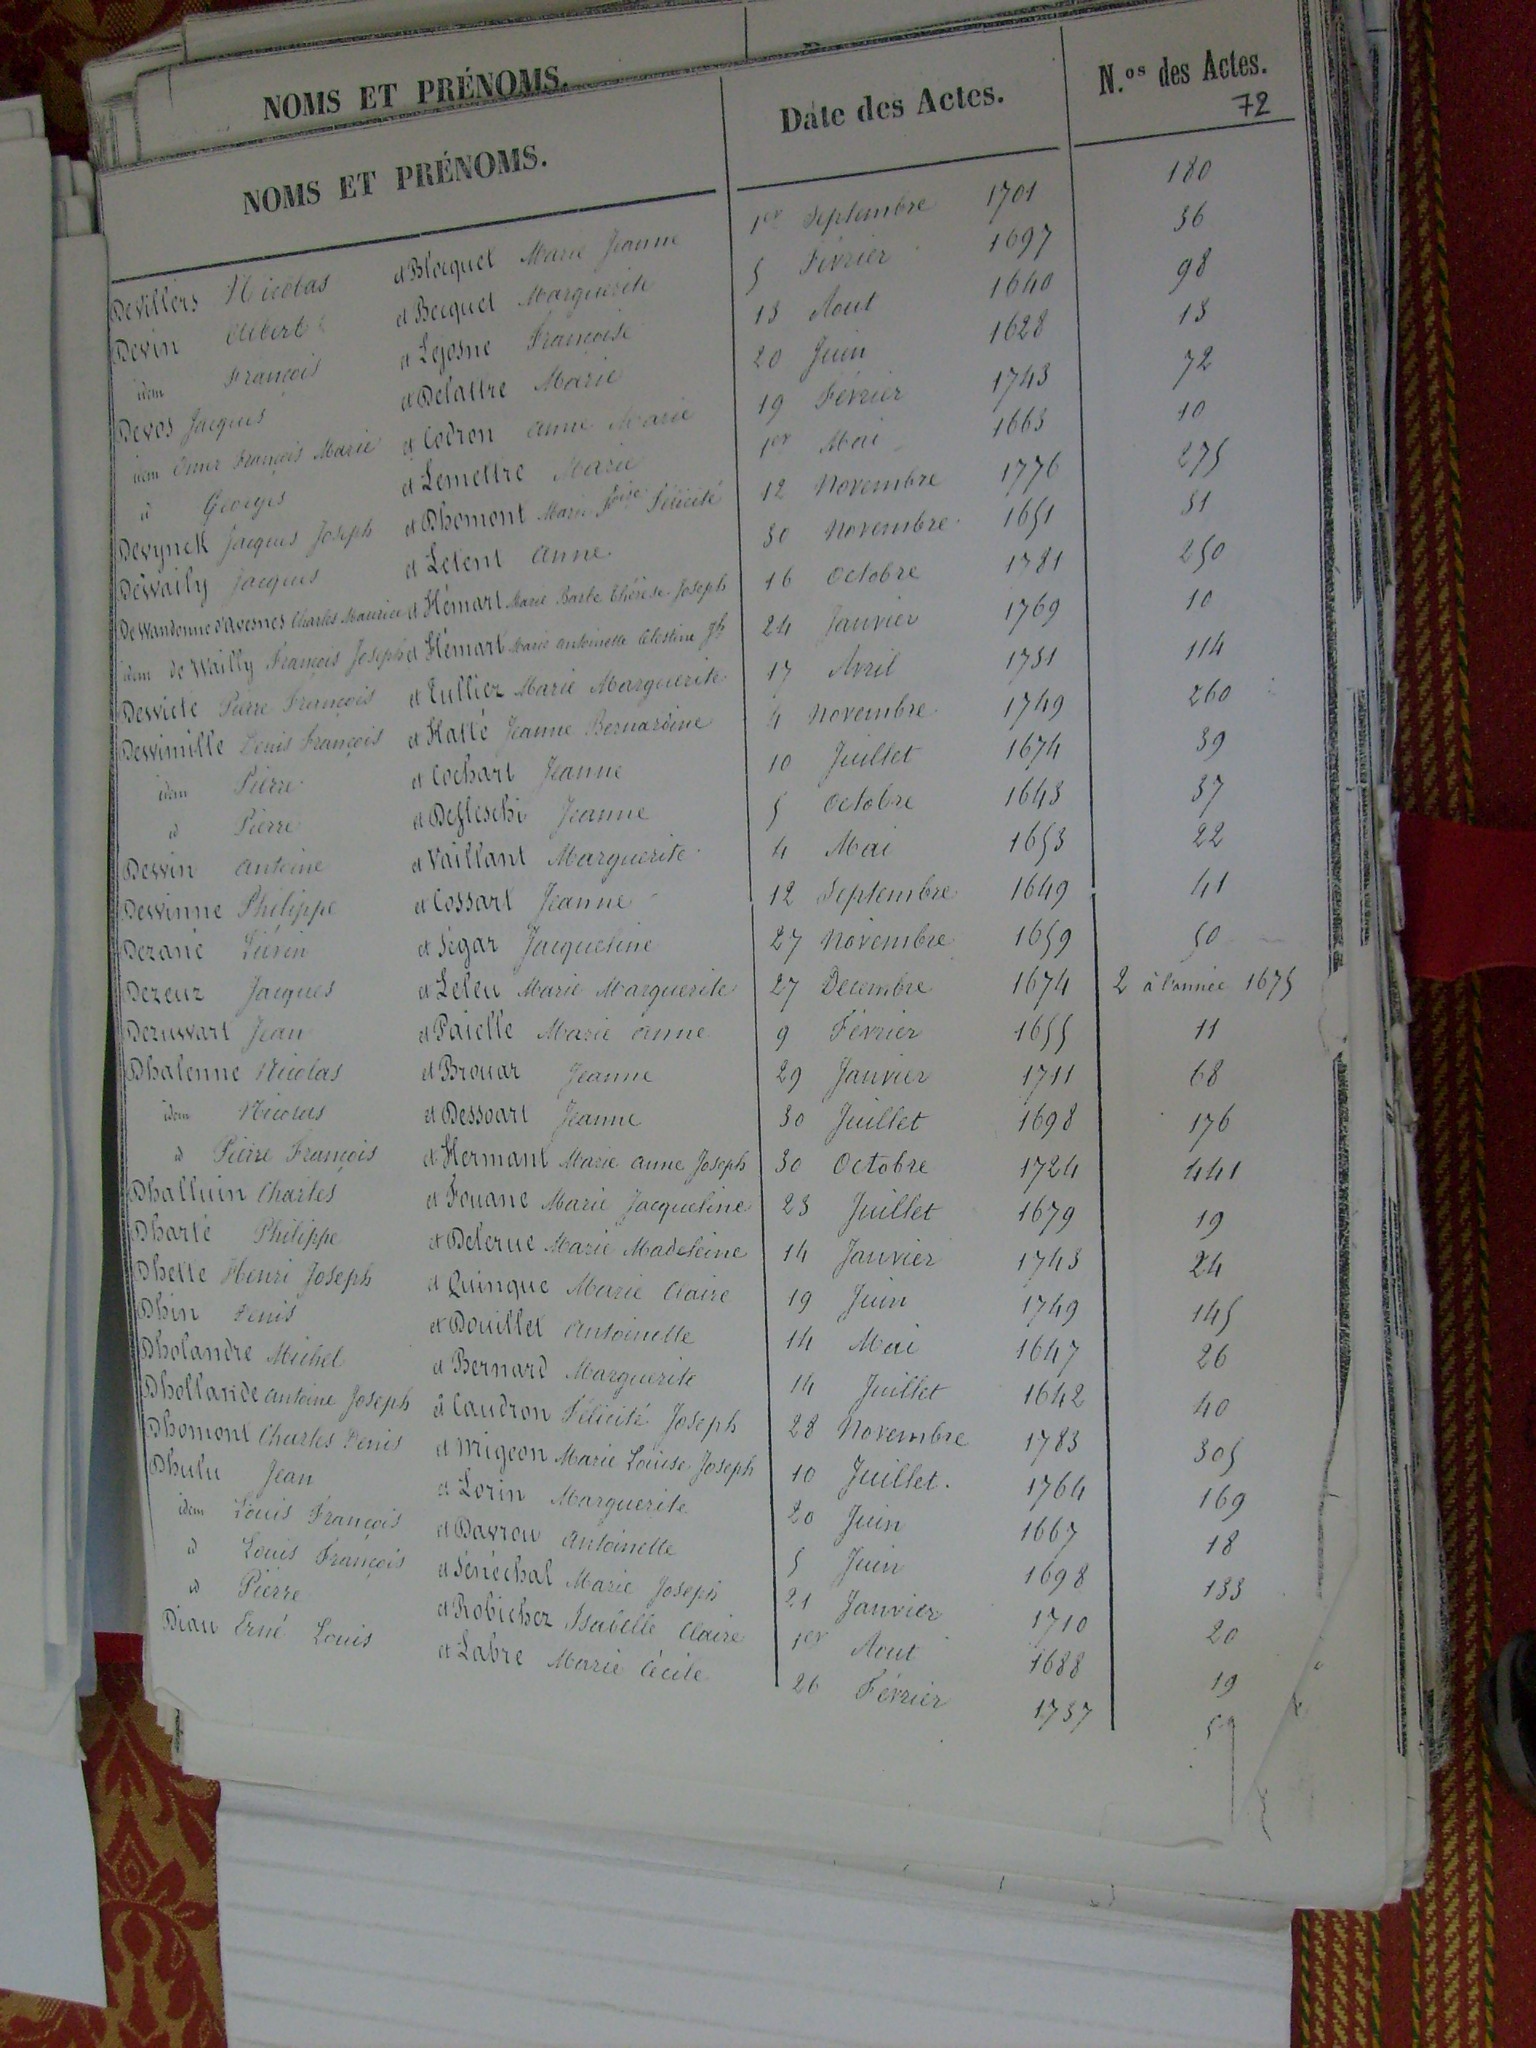 NOMS ET PRÉNOMS.
NOMS ET PRÉNOMS. Date des Actes. N.os des Actes.
72
Devillers Nicolas et Blocquel Marie Jeanne 1er Septembre 1701 180
Devin Albert et Becquet Marguerite 5 Février 1697 36
idem François et Lejosne Françoise 13 Aout 1640 98
Devos Jacques et Delattre Marie 20 Juin 1628 13
idem Omer François Marie et Codron Anne Marie 19 Février 1743 72
id Georges et Lemettre Marie 1er Mai 1663 10
Devynck Jacques Joseph et Dhomont Marie Foise Félicité 12 Novembre 1776 275
Dewailly Jacques et Letent Anne 30 Novembre 1651 31
De Wandonne d'Avesnes Charles Maurice et Hémart Marie Barbe Thérèse Joseph 16 Octobre 1781 250
idem de Wailly François Joseph et Hémart Marie Antoinette Célestine Jh 24 Janvier 1769 10
Dewiete Pierre François et Tullier Marie Marguerite 17 Avril 1731 114
Dewimille Louis François et Hatté Jeanne Bernardine 4 Novembre 1749 260
idem Pierre et Cochart Jeanne 10 Juillet 1674 39
id Pierre et Defleschi Jeanne 5 Octobre 1643 37
Dewin Antoine et Vaillant Marguerite 4 Mai 1653 22
Dewinne Philippe et Cossart Jeanne 12 Septembre 1649 41
Dezané Liévin et Ségar Jacqueline 27 Novembre 1659 50
Dezeur Jacques et Leleu Marie Marguerite 27 Décembre 1674 2 à l'année 1675
Dezuwart Jean et Paielle Marie Anne 9 Février 1655 11
Dhalenne Nicolas et Brouar Jeanne 29 Janvier 1711 68
idem Nicolas et Dessoart Jeanne 30 Juillet 1698 176
id Pierre François et Hermant Marie Anne Joseph 30 Octobre 1724 441
Dhalluin Charles et Fouane Marie Jacqueline 23 Juillet 1679 19
Dharté Philippe et Delerue Marie Madeleine 14 Janvier 1743 24
Dhette Henri Joseph et Quinque Marie Claire 19 Juin 1749 145
Dhin Denis et Douillet Antoinette 14 Mai 1647 26
Dholandre Michel et Bernard Marguerite 14 Juillet 1642 40
Dhollande Antoine Joseph et Caudron Félicité Joseph 28 Novembre 1783 305
Dhomont Charles Denis et Migeon Marie Louise Joseph 10 Juillet. 1764 169
Dhulu Jean et Lorin Marguerite 20 Juin 1667 18
idem Louis François et Davrou Antoinette 5 Juin 1698 133
id Louis François et Sénéchal Marie Joseph 21 Janvier 1710 20
id Pierre et Robichez Isabelle Claire 1er Aout 1688 19
Diau Erné Louis et Labre Marie Cécile 26 Février 1737